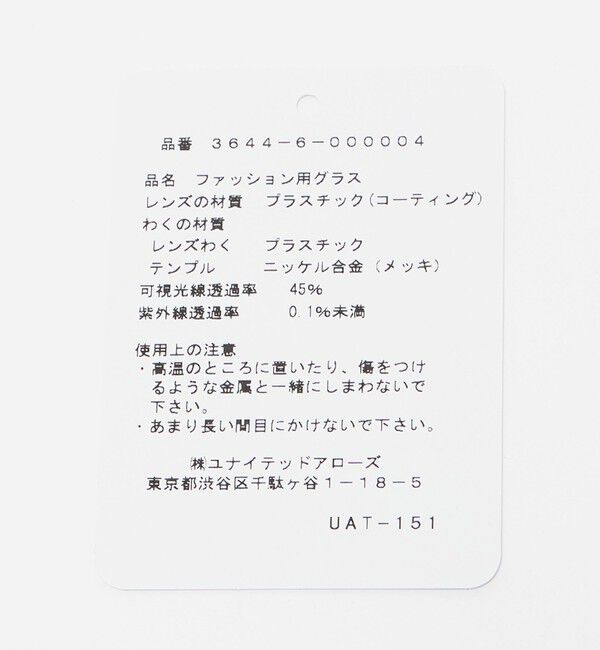 品番 3644-6-000004
品名 ファッション用グラス
レンズの材質 プラスチック(コーティング)
わくの材質
レンズわく プラスチック
テンプル ニッケル合金(メッキ)
可視光線透過率 45%
紫外線透過率 0.1%未満
使用上の注意
・高温のところに置いたり、傷をつけ
るような金属と一緒にしまわないで
下さい。
・あまり長い間目にかけないで下さい。
㈱ユナイテッドアローズ
東京都渋谷区千駄ヶ谷1-18-5
UAT-151